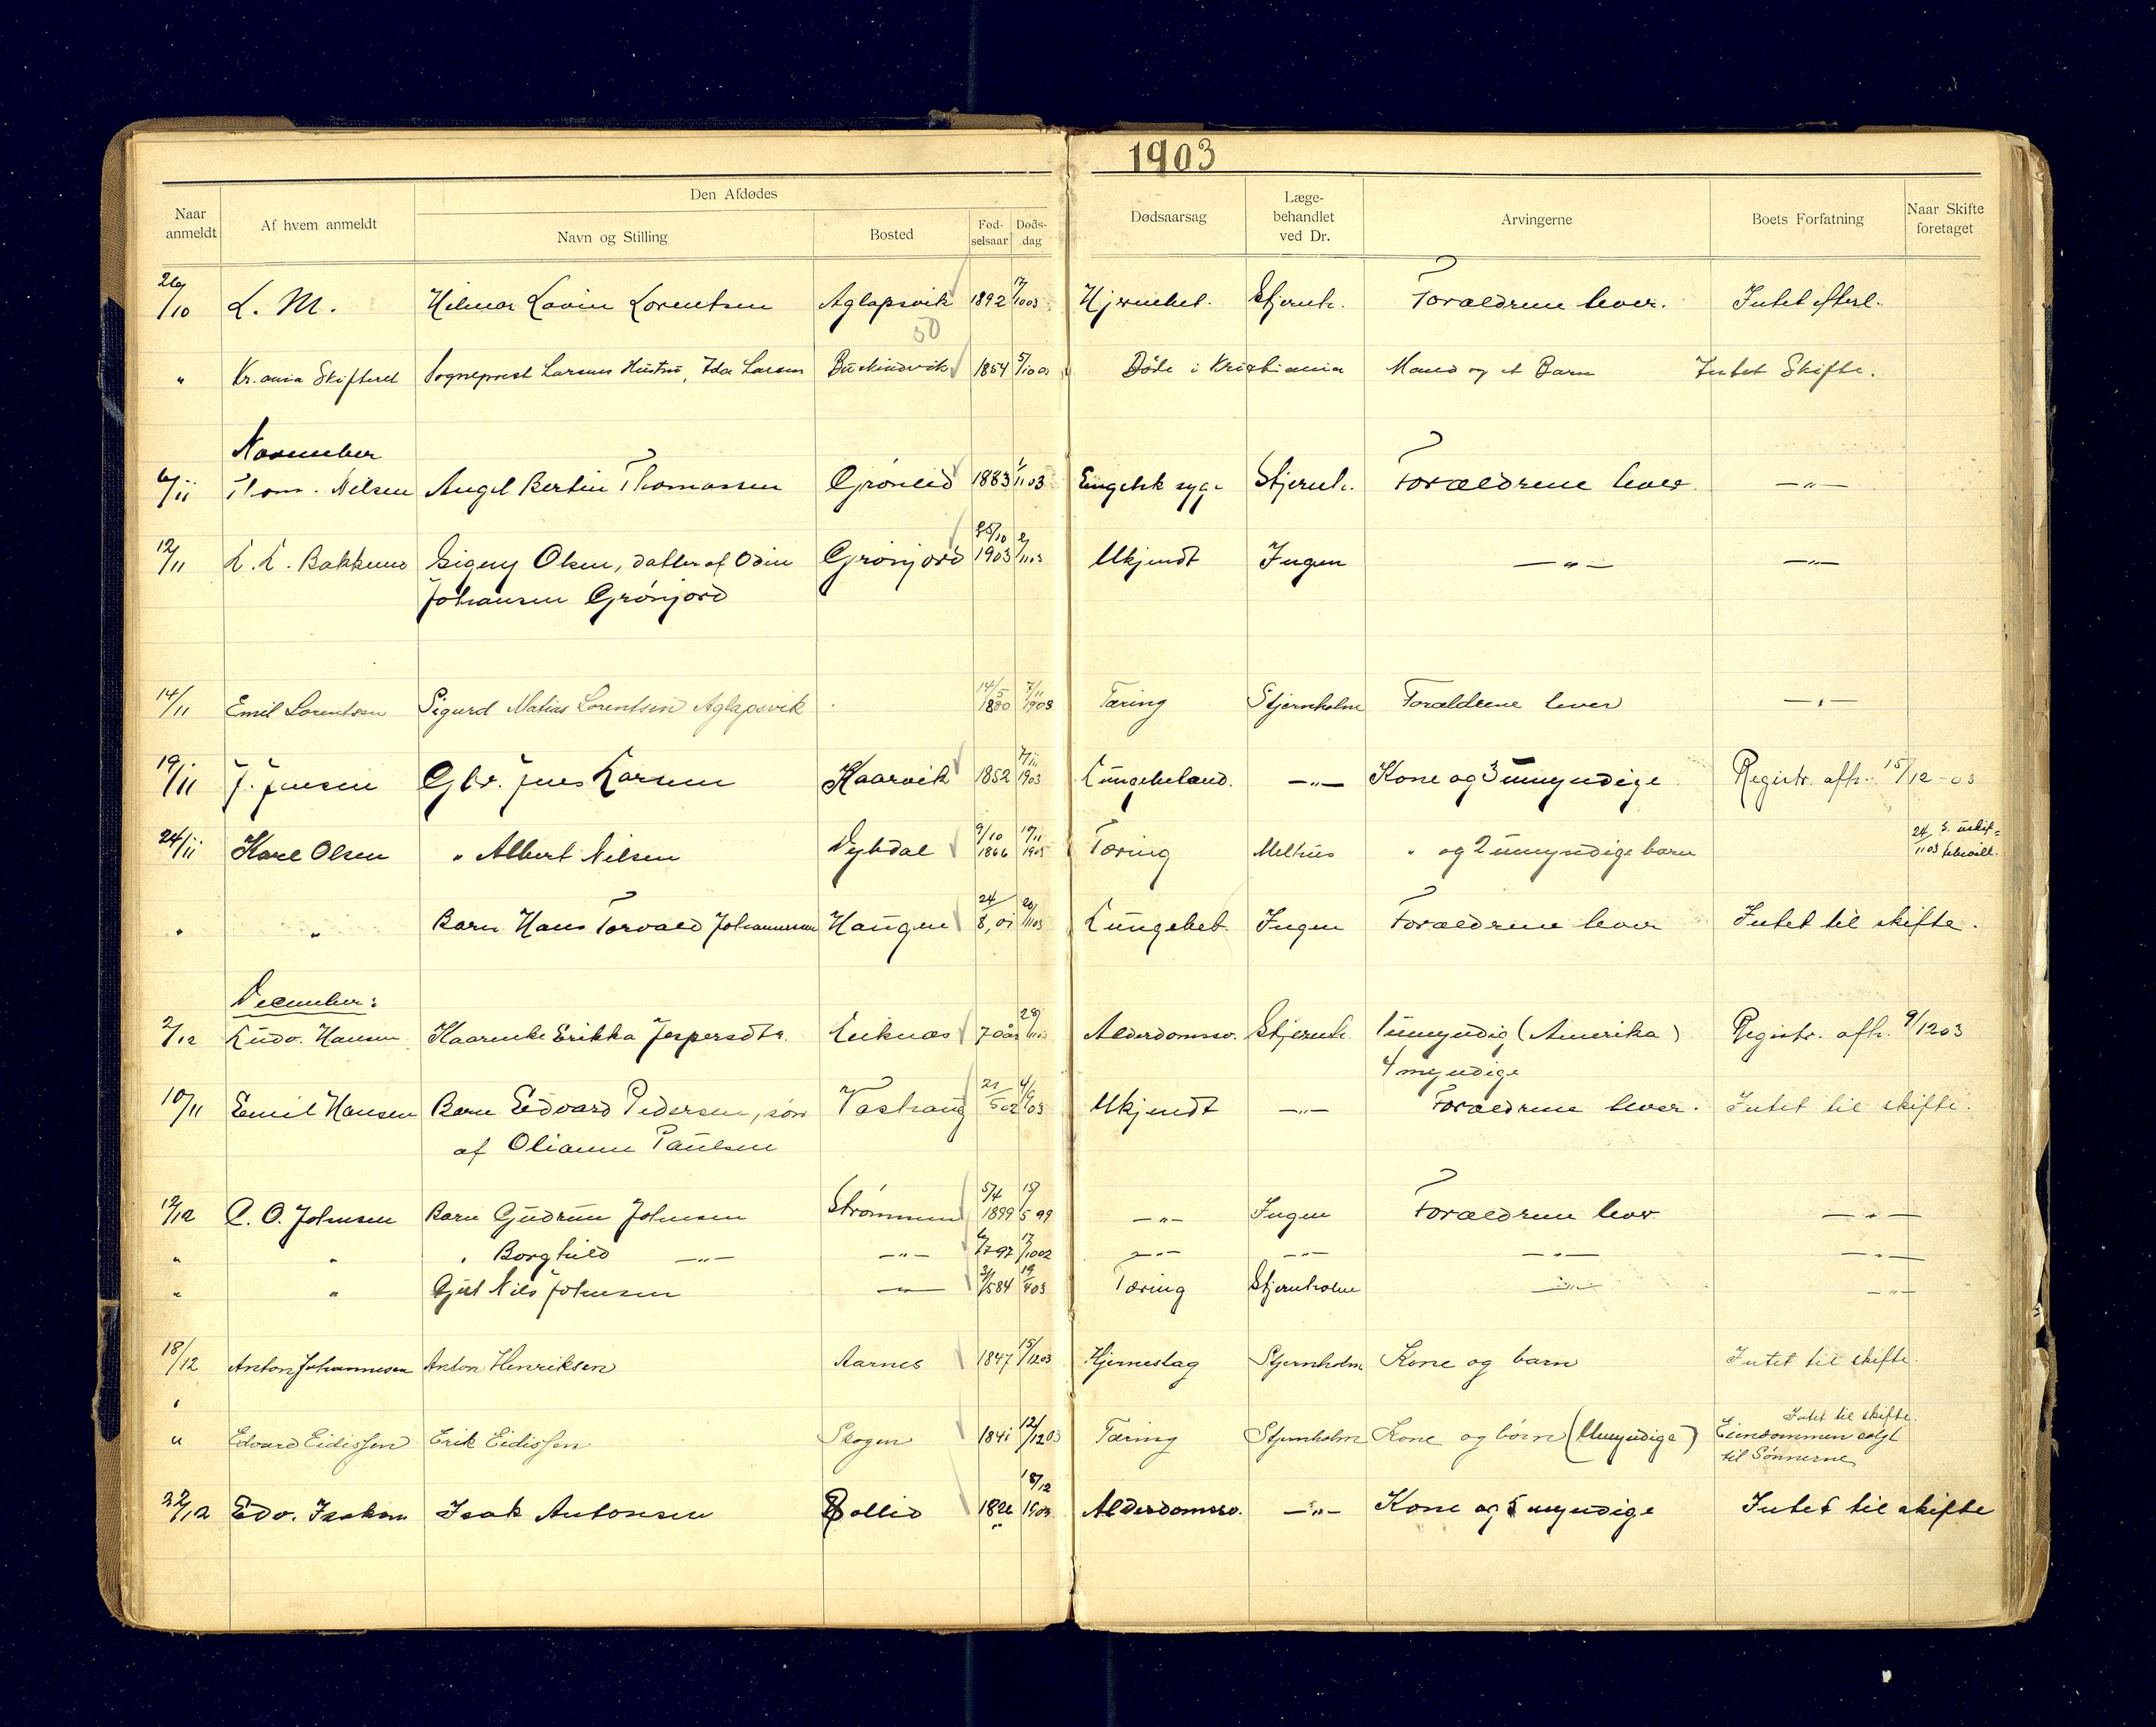 1903
Naar anmeldt | Af hvem anmeldt | Den Afdødes | Dødsaarsag | Læge-behandlet ved Dr. | Arvingerne | Boets Forfatning | Naar Skifte foretaget
Navn og Stilling | Bosted | Fød-selsaar | Døds-dag
26/10 | L. M. | Hilmar Lavin Lorentsen | Aglapsvik | 1892 | 17/10 03 | Hjernebet. | Stjernh. | Forældrene lever. | Intet efterl.
50
" | Kr.ania Skifteret | Sogneprest Larsens Hustru, Ida Larsen | 1854 | 5/10 03 | Døde i Kristiania | Mand og et Barn | Intet Skifte.
November
6/11 | Thom. Nelsen | Angel Bertin Thomassen | Grönlid | 1883 | 1/11 03 | Engelsk syge | Stjernh. | Forældrene lever | —"—
12/11 | L. L. Bakkemo | Signy Olsen, datter af Odin | Grönjord | 25/10 1903 | 2/11 03 | Ukjendt | Ingen | —"— | —"—
Johansen Grönjord
14/11 | Emil Lorentsen | Sigurd Matias Lorentsen Aglapsvik | 14/5 1880 | 7/11 1903 | Tæring | Stjernholm | Forældrene lever | —"—
19/11 | J. Jensen | Gbr. Jens Larsen | Kaarvik | 1852 | 7/11 1903 | Lungebetænd. | —"— | Kone og 3 umyndige | Registr. afh. 15/12-03
24/11 | Karl Olsen | " Albert Nilsen | Dybdal | 9/10 1866 | 19/11 1903 | Tæring | Melhus | " og 2 umyndige barn | 24/11 03
" | " | Barn Hans Torvald Johannessen | Haugen | 24/8, 01 | 20/11 03 | Lungebet. | Ingen | Forældrene lever | Intet til skifte.
December:
2/12 | Ludv. Hansen | Kaarenke Erikka Jespersdtr. | Leiknæs | 70 aar | 28/11 03 | Alderdomssv. | Stjernh. | 1 umyndig (Amerika) | Registr. afh. 9/12 03
4 myndige
10/11 | Emil Hansen | Barn Edvard Pedersen, søn | Vashaug | 21/5 02 | 4/9 03 | Ukjendt | —"— | Forældrene lever. | Intet til skifte.
af Olianne Paulsen
12/12 | C. O. Johnsen | Barn Gudrun Johnsen | Strømmen | 5/4 1899 | 15/5 99 | —"— | Ingen | Forældrene lever | —"—
" | " | " Borghild —"— | —"— | 6/7 97 | 17/10 02 | —"— | —"— | —"— | —"—
" | " | Gut Nils Johnsen | —"— | 31/5 84 | 19/4 03 | Tæring | Stjernholm | —"— | —"—
18/12 | Anton Johannesen | Anton Henriksen | Aarnes | 1847 | 15/12 03 | Hjerneslag | Stjernholm | Kone og barn | Intet til skifte.
" | Edvard Eidissen | Erik Eidissen | Skogen | 1841 | 12/12 03 | Tæring | Stjernholm | Kone og börn (Umyndige) | Intet til skifte.
Eiendommen solgt
til Sønnerne
22/12 | Edv. Isaksen | Isak Antonsen | Bollid | 1826 | 18/12 1903 | Alderdomssv. | —"— | Kone og 5 myndige | Intet til skifte